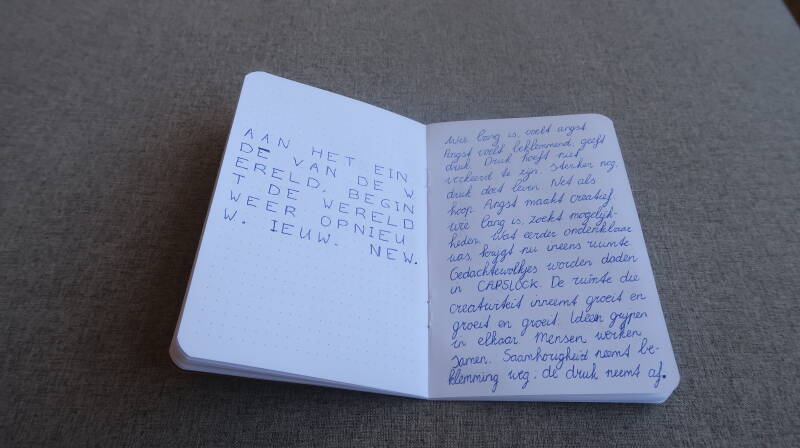 AAN HET EIN
DE VAN DE W
ERELD, BEGIN
T DE WERELD
WEER OPNIEU
W. IEUW. NEW.
Wie lang is, voelt angst
Angst voelt beklemmend, geeft
druk. Druk hoeft niet
verkeerd te zijn. Sterker nog,
druk doet leven. Net als
hoop. Angst maakt creatief
wie lang is, zoekt mogelijk-
heden. Wat eerder ondenkbaar
was, krijgt nu ineens ruimte.
Gedachtewolkjes worden daden
in CAPSLOCK. De ruimte die
creativiteit inneemt groeit en
groeit en groeit. Ideeën grijpen
in elkaar Mensen werken
samen. Saamhorigheid neemt be-
klemming weg; de druk neemt af.